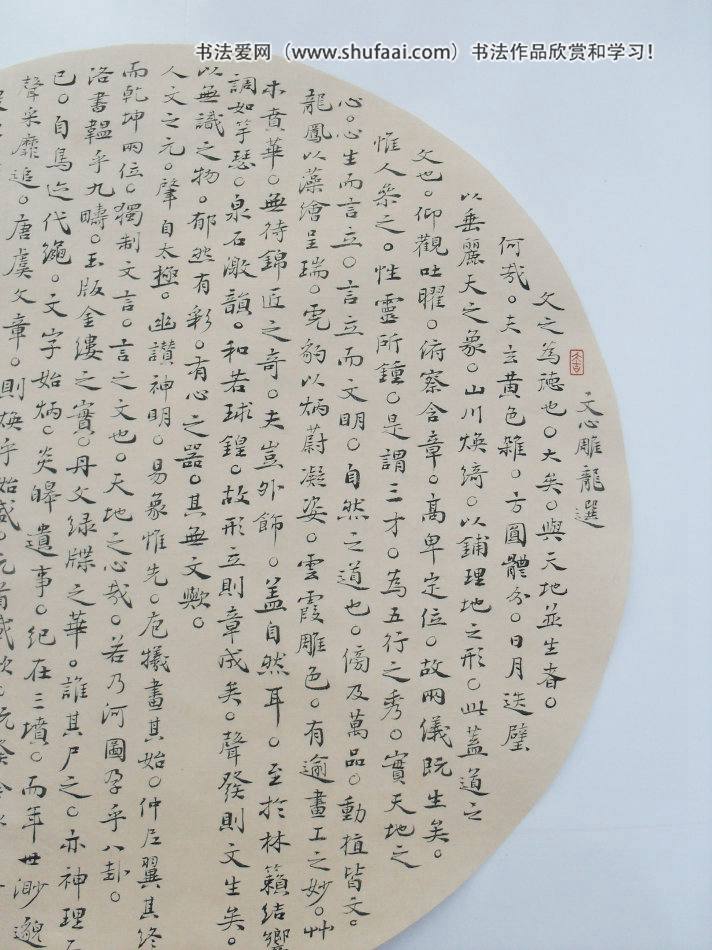 书法爱网（www.shufaai.com）书法作品欣赏和学习！
文心雕龍選
文之為德也。大矣。與天地並生者。
何哉。夫玄黄色雜。方圓體分。日月迭璧
以垂麗天之象。山川煥綺。以鋪理地之形。此蓋道之
文也。仰觀吐曜。俯察含章。高卑定位。故兩儀既生矣。
惟人叅之。性靈所鍾。是謂三才。為五行之秀。實天地之
心。心生而言立。言立而文明。自然之道也。傍及萬品。動植皆文。
龍鳳以藻繪呈瑞。虎豹以炳蔚凝姿。雲霞雕色。有逾畫工之妙。艸
木賁華。無待錦匠之奇。夫豈外飾。盖自然耳。至於林籟結響
調如竽瑟。泉石激韻。和若球鍠。故形立則章成矣。聲發則文生矣。
以無識之物。郁然有彩。有心之器。其無文歟。
人文之元。肇自太極。幽讚神明。易象惟先。庖犧畫其始。仲尼翼其終
而乾坤兩位。獨制文言。言之文也。天地之心哉。若乃河圖孕乎八卦。
洛書韞乎九疇。玉版金鏤之實。丹文绿牒之華。誰其尸之。亦神理
已。自鳥迹代繩。文字始炳。炎皞遺事。紀在三墳。而年世渺邈
聲采靡追。唐虞文章。則煥乎始盛。元首載